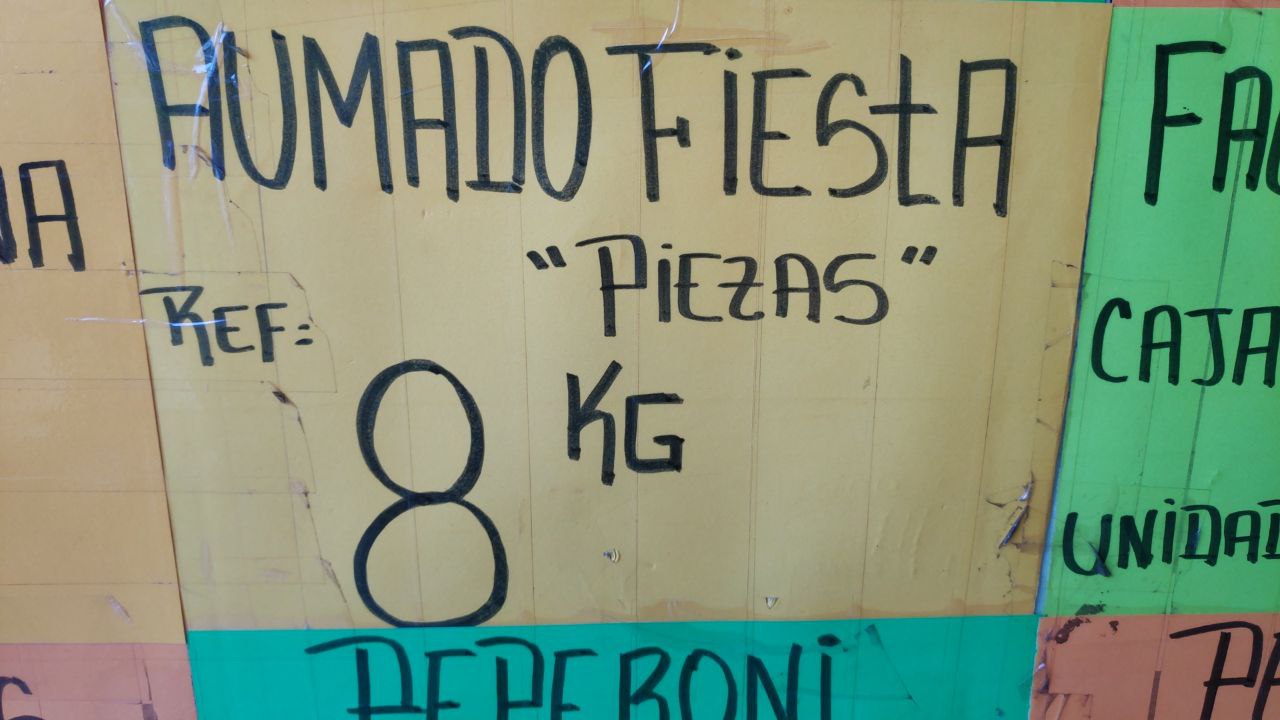 AUMADO FiEStA
"PiEZAS"
REF:
8 KG
PEPERONi
CAJA
UNiDAD